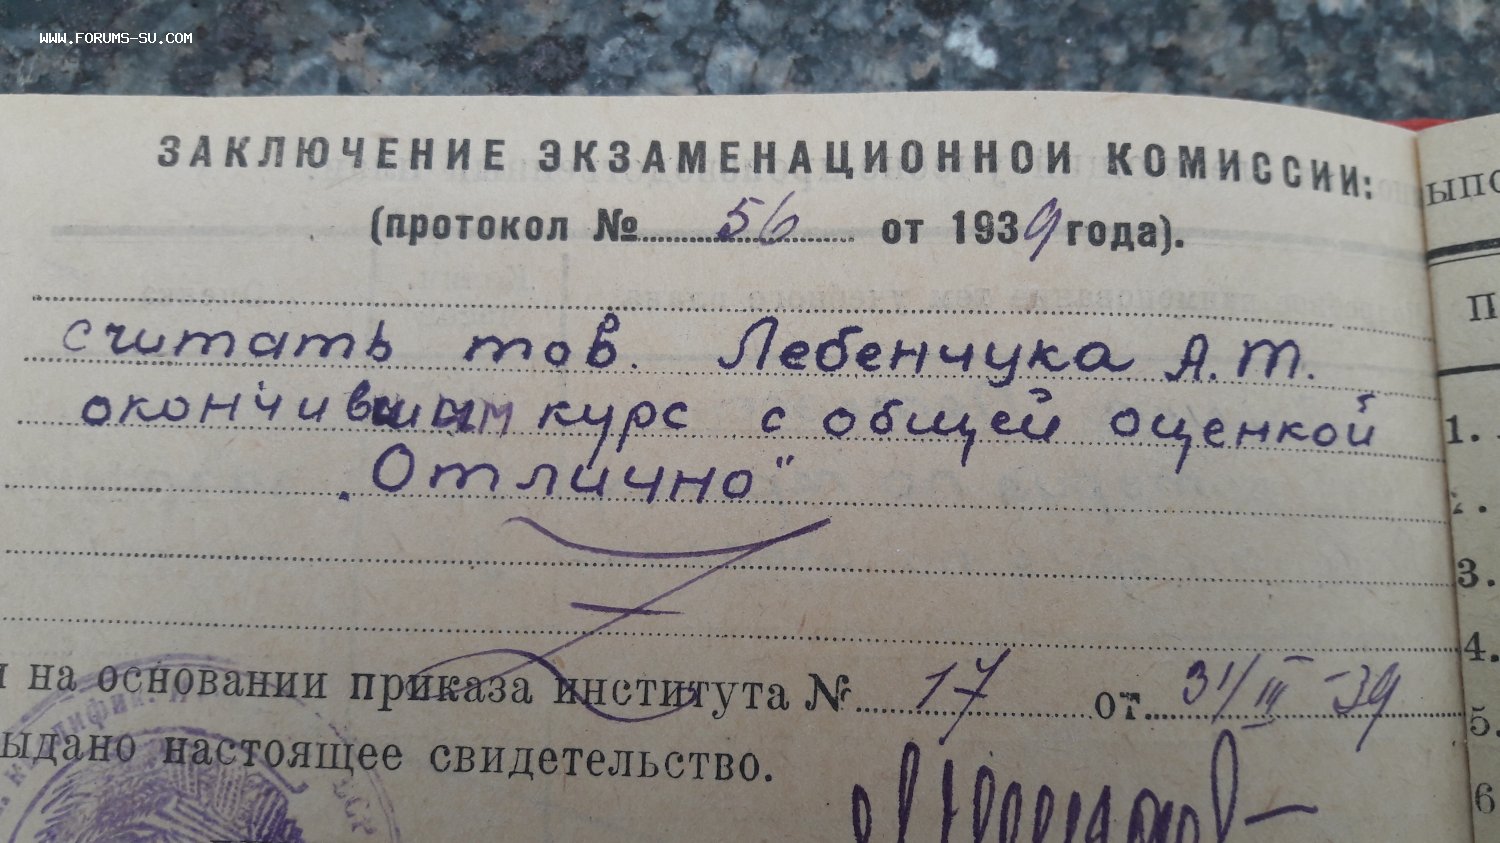 WWW.FORUMS-SU.COM
ЗАКЛЮЧЕНИЕ ЭКЗАМЕНАЦИОННОЙ КОМИССИИ:
(протокол № 56 от 1939 года).
считать тов. Лебенчука А.Т.
окончившим курс с общей оценкой
„Отлично"
и на основании приказа института № 17 от 31/III-39
ыдано настоящее свидетельство.
ыпо
П
1.
2.
3.
4.
5.
6